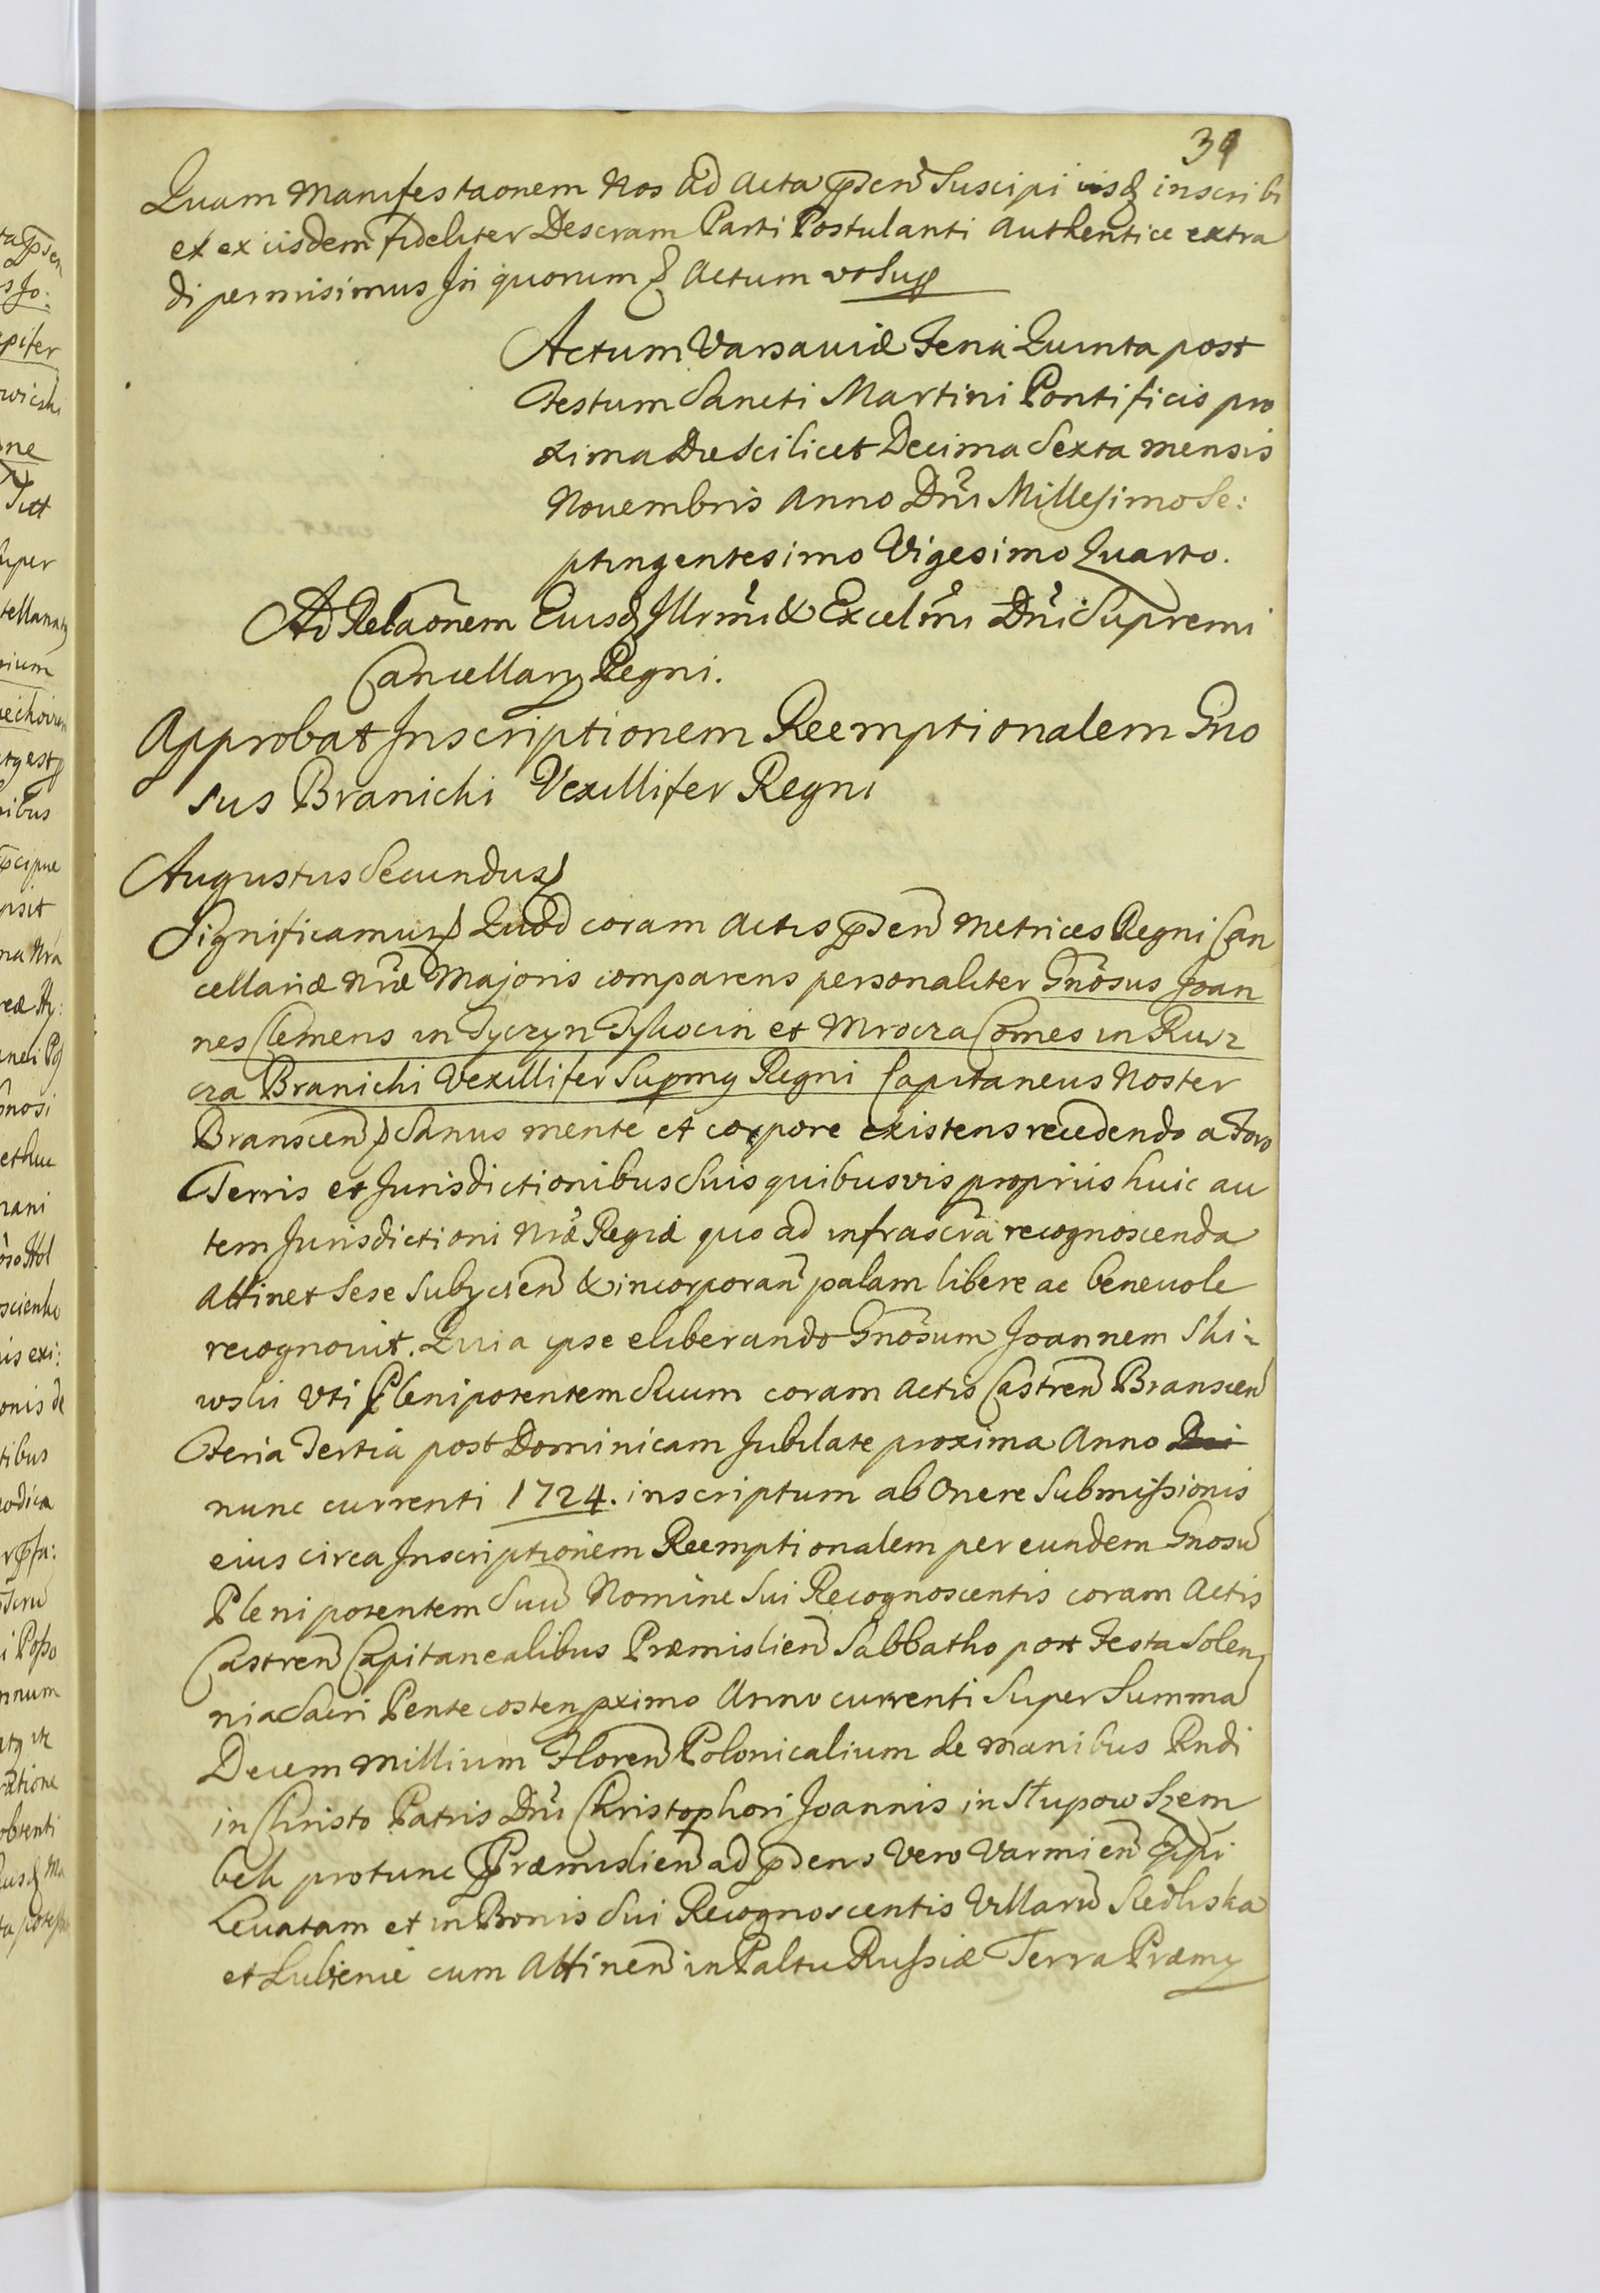 39
Quam Manifestaonem Nos ad Acta psen Suscipi iisq inscribi
et ex iisdem fideliter Descram Parti Postulanti Authentice extra
di permisimus In quorum Actum vt Sup
Actum Varsaviæ Feria Quinta post
Festum Sancti Martini Pontificis pro
xima Die Scilicet Decima Sexta mensis
Novembris Anno Dni Millesimo Se:
ptingentesimo Vigesimo Quarto.
Ad Relaonem Eiusd Illrmi & Excelmi Dni Supremi
Cancellarÿ Regni.
Approbat Inscriptionem Reemptionalem Gno
sus Branicki Vexillifer Regni
Augustus Secundus
Significamus Quod coram Actis psen Metrices Regni Can
cellariæ Nræ Majoris comparens personaliter Gnosus Joan
nes Clemens in Tyczyn Tykocin et Mrocza Comes in Rusz
cza Branicki Vexillifer Supmg Regni Capitaneus Noster
Branscen Sanus mente et corpore existens recedendo a Foro
Terris et Jurisdictionibus Suis quibusvis proprijs huic au
tem Jurisdictioni Nræ Regiæ quo ad infrascra recognoscenda
Attinet Sese Subycien & incorporan palam libere ac benevole
recognovit. Quia ipse eliberando Gnosum Joannem Ski-
wski Vti Plenipotentem Suum coram Actis Castren Branscen
Feria Tertia post Dominicam Jubilate proxima Anno Dni
nunc currenti 1724. inscriptum ab Onere Submissionis
eius circa Inscriptionem Reemptionalem per eundem Gnosu
Plenipotentem Suu Nomine Sui Recognoscentis coram Actis
Castren Capitanealibus Præmislien Sabbatho post Festa Solen
nia Sacri Pentecostes pximo Anno currenti Super Summa
Decem Millium Floren Polonicalium de manibus Rndi
in Christo Patris Dni Christophori Joannis in Słupow Szem
bek protunc Præmislien ad psens Vero Varmien Eppi
Levatam et in Bonis Sui Recognoscentis Villaru Siedliska
et Lubenie cum Attinen in Paltu Russiæ Terra Præmy